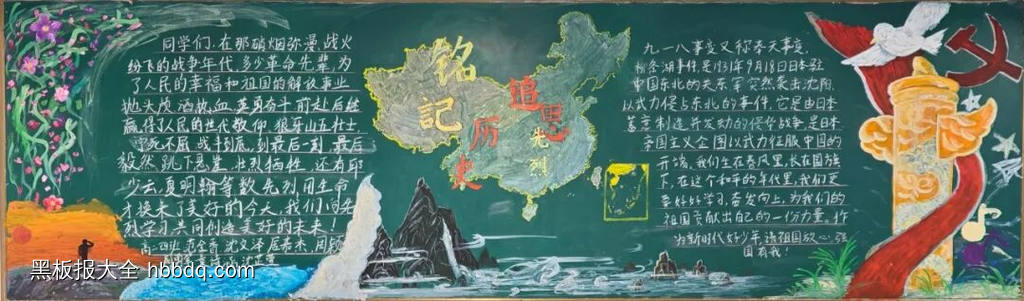 同学们,在那硝烟弥漫,战火
纷飞的战争年代,多少革命先辈,为
了人民的幸福和祖国的解放事业
抛头颅,洒热血,英勇奋斗前赴后继
赢得了人民的世代敬仰,狼牙山五壮士,
宁死不屈,战斗到底,到最后一刻,最后
毅然跳下悬崖,壮烈牺牲,还有邱
少云,夏明翰等数先烈用生命
才换来了美好的今天,我们向先
烈学习共同创造美好的未来!
铭記
历史
追思
先烈
九一八事变又称奉天事变,
柳条湖事件,是1931年9月18日日本驻
中国东北的关东军突然袭击沈阳,
以武力侵占东北的事件,它是由日本
蓄意制造并发动的侵华战争,是日本
帝国主义企图以武力征服中国的
开端,我们生在春风里,长在国旗
下,在这个和平的年代里,我们更
要好好学习,奋发向上,为我们的
祖国贡献出自己的一份力量,作
为新时代好少年,请祖国放心,强
国有我!
黑板报大全 hbbdq.com